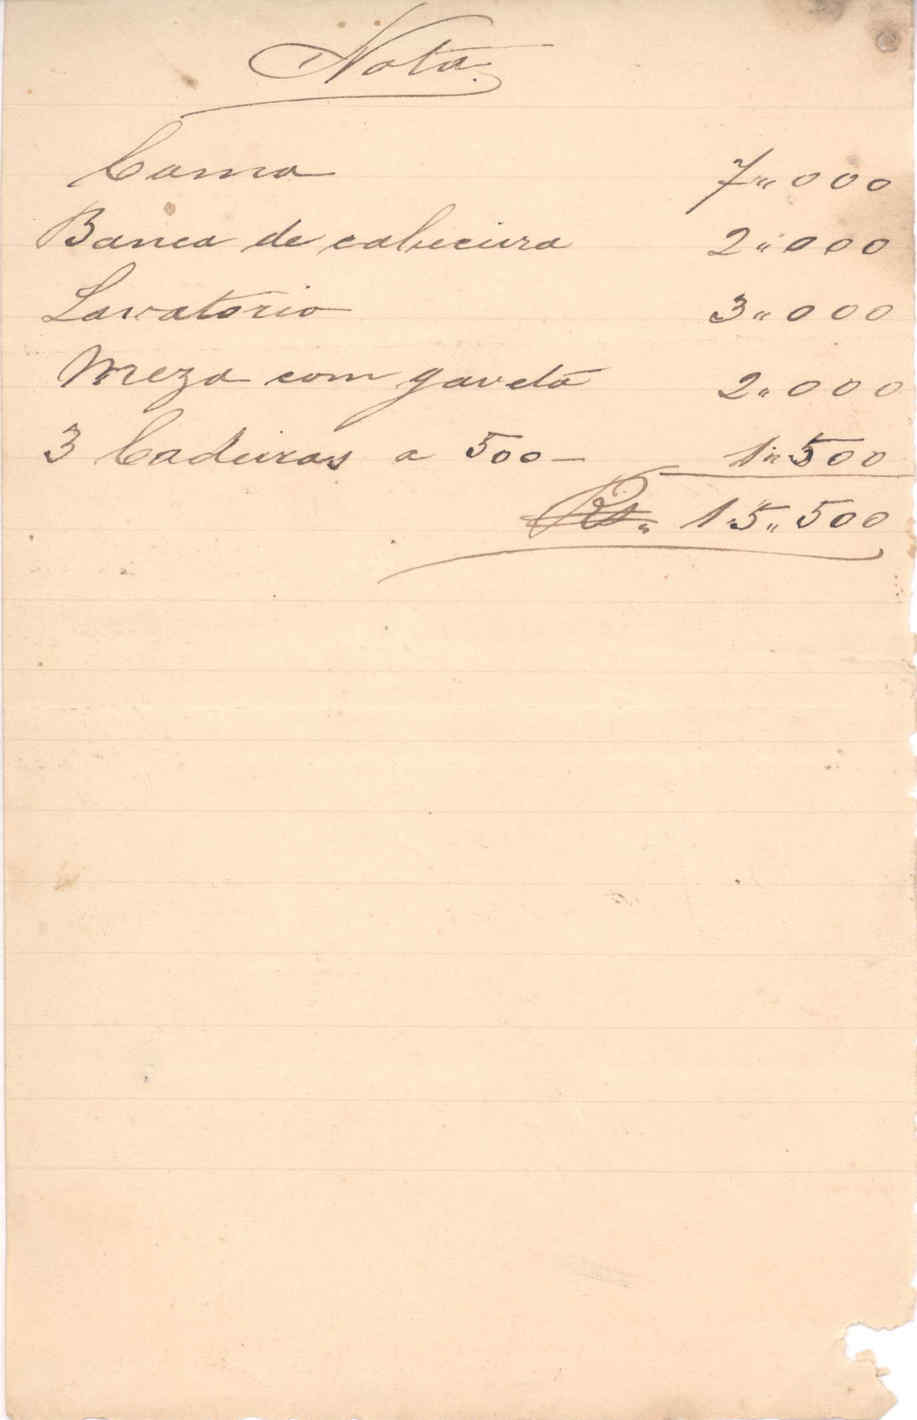 Nota
Cama 7"000
Banca de cabeceira 2"000
Lavatorio 3"000
Meza com gaveta 2"000
3 Cadeiras a 500 — 1"500
Rs. 15"500